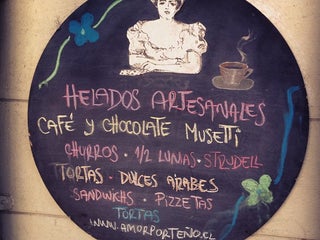 HELADOS ARTESANALES
CAFÉ Y CHOCOLATE MUSETTI
CHURROS · 1/2 LUNAS · STRUDELL
TORTAS · DULCES ARABES
SANDWICHS · PIZZETAS
TORTAS
WWW.AMORPORTEÑO.CL